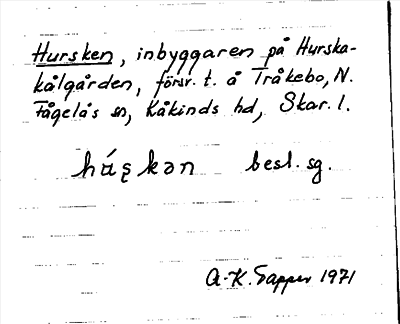 Hursken, inbyggaren på Hurska-
kålgården, försv. t. å Tråkebo, N.
Fågelås sn, Kåkinds hd, Skar. l.
best. sg.
A-K. Tapper 1971